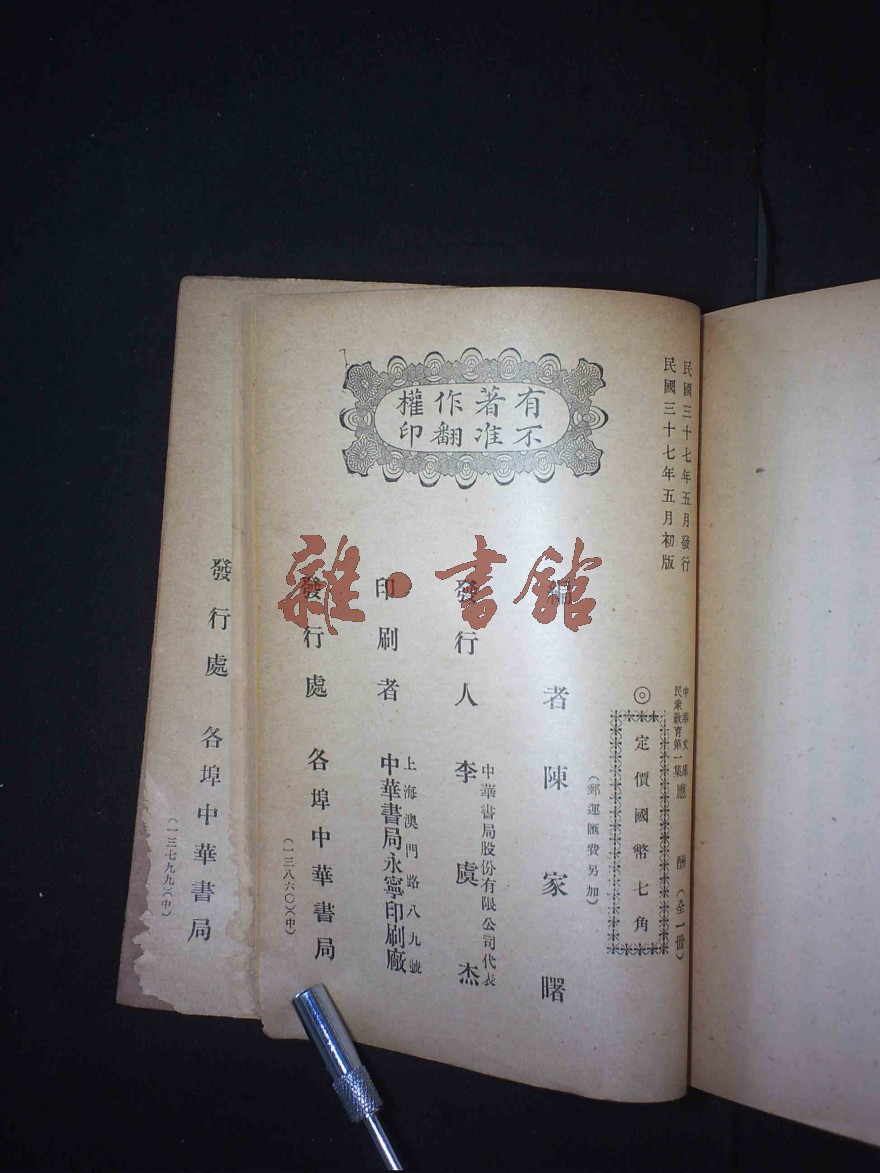 民國三十七年五月發行
民國三十七年五月初版
中華文庫
民衆教育第一集
應酬（全一冊）
◎定價國幣七角
（郵運匯費另加）
有著作權
不准翻印
編者 陳家曙
發行人 李虞杰
中華書局股份有限公司代表
印刷者
上海澳門路八九號
中華書局永寧印刷廠
發行處 各埠中華書局
（一三八六〇）（中）
發行處 各埠中華書局
（一三七九九）（中）
雜·書館